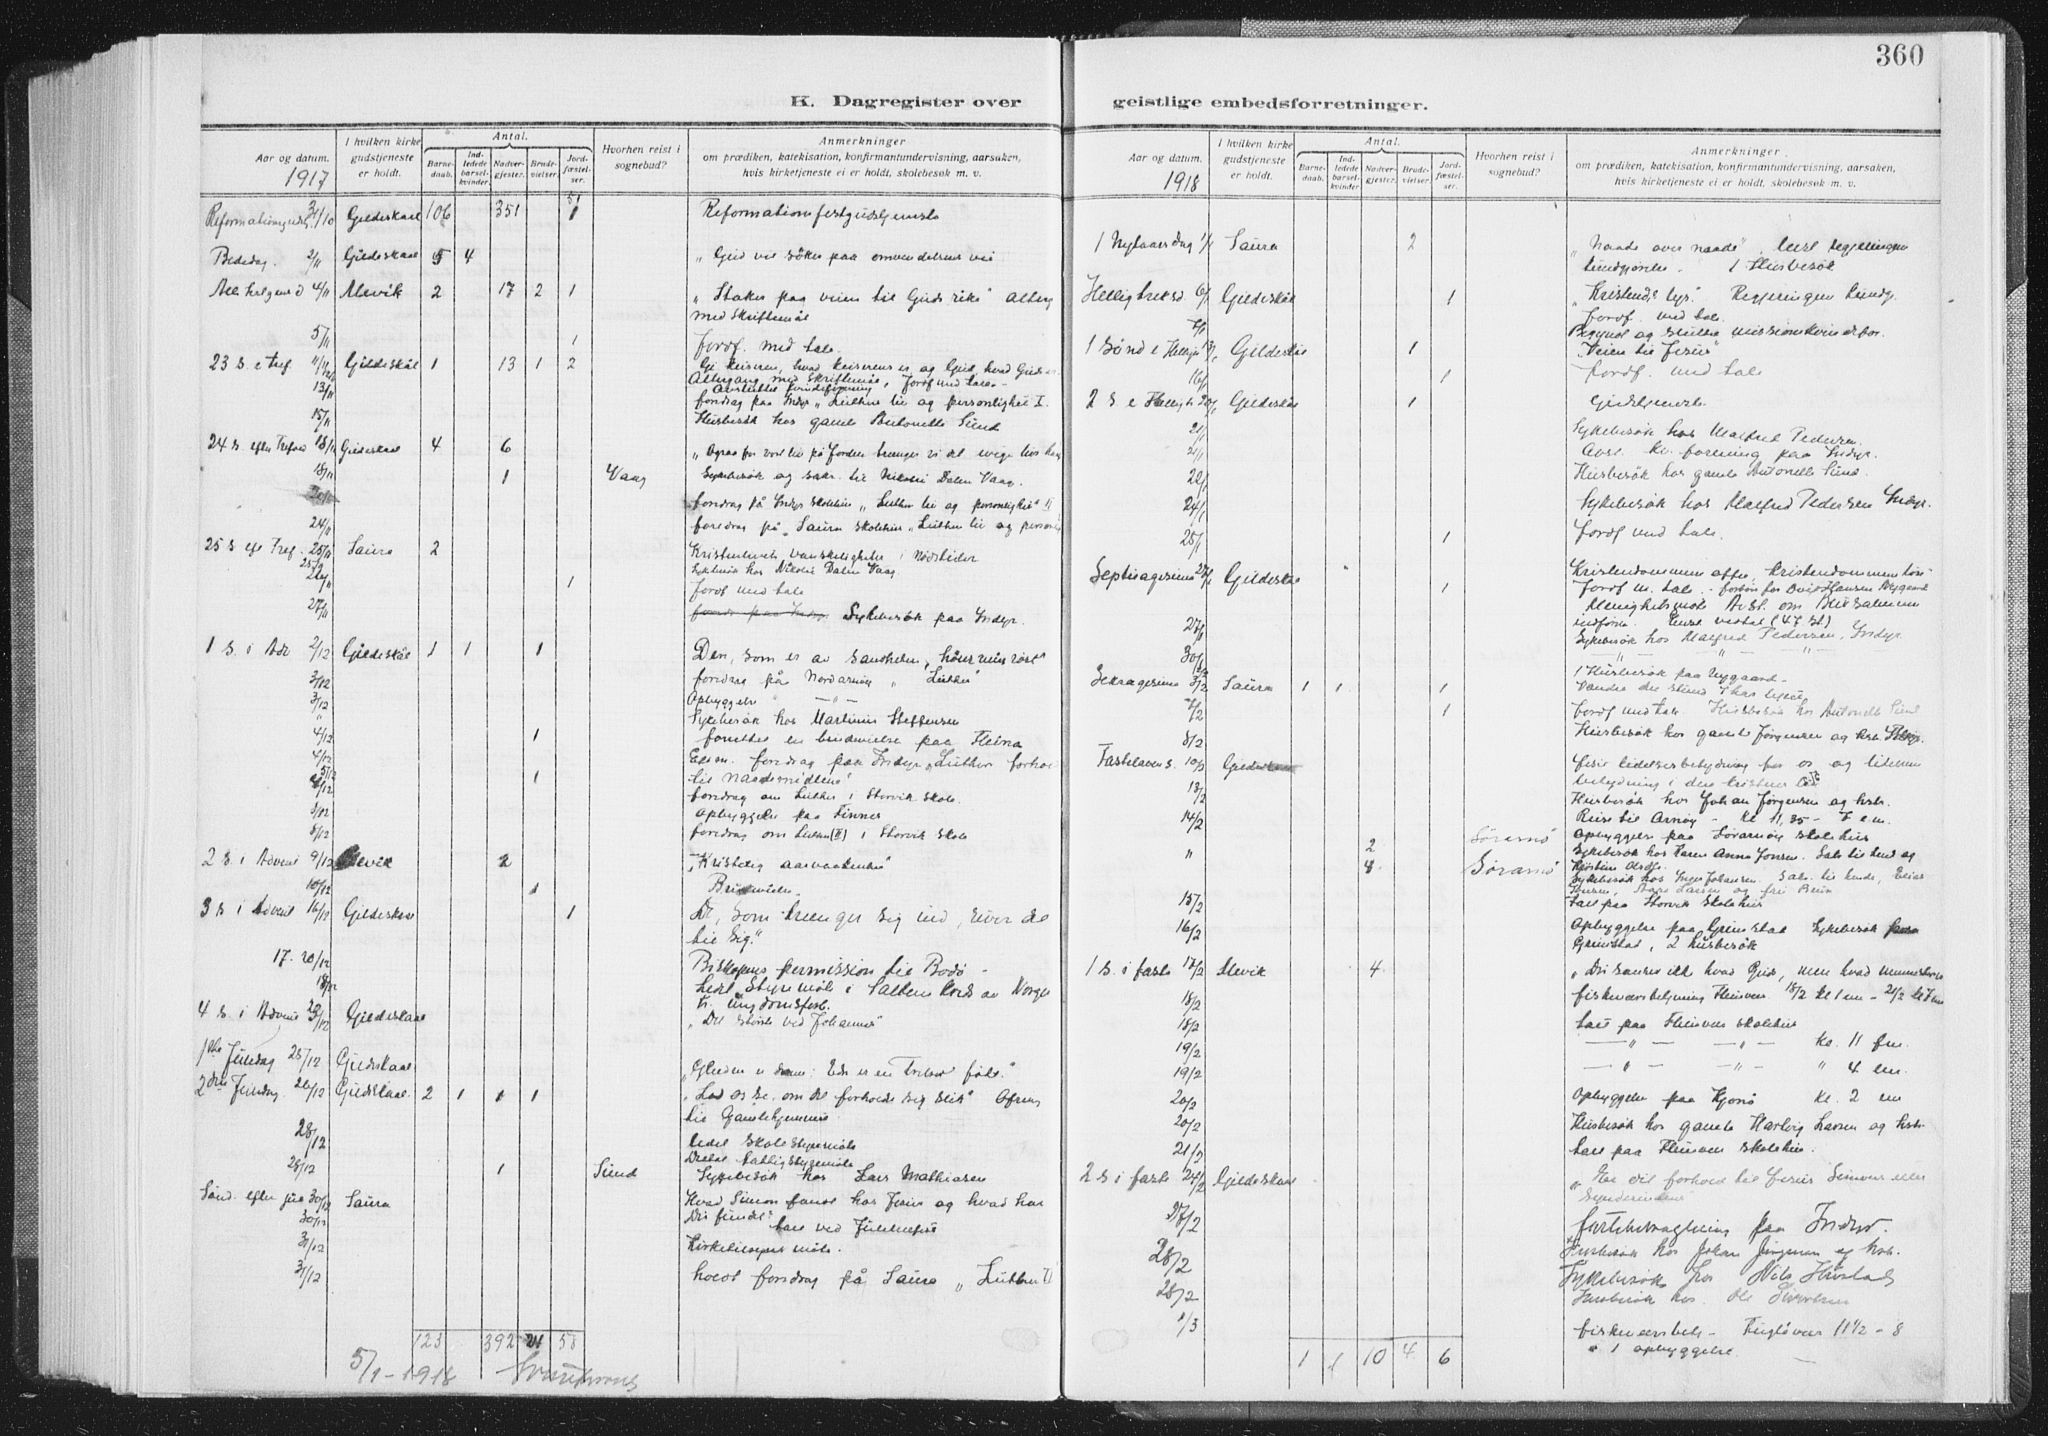 360
K. Dagregister over
geistlige embedsforretninger.
Aar og datum.
1917
I hvilken kirke gudstjeneste er holdt.
Antal.
Barnedaab.
Indledede barselkvinder.
Nadvergjester.
Brudevielser.
Jordfæstelser.
Hvorhen reist i sognebud?
Anmerkninger
om prædiken, katekisation, konfirmantundervisning, aarsaken,
hvis kirketjeneste ei er holdt, skolebesøk m. v.
31/10 Gildeskaal 106 351 51 Reformationsfestgudstjeneste
Bededag. 2/11 Gildeskaal 5 4 „Gud vil søkes paa omvendelsens vei
4/11 Alevik 2 17 2 1 „Staker paa veien til Guds rike" Alterg
med Skriftemål
5/11 1 Jordf. med tale.
23 S. e Tref 11/11 Gildeskål 1 13 1 2 Gi keiseren, hvad keiserens er, og Gud, hvad Guds er
Altergang med Skriftemål, Jordf med tale
13/11 foredrag paa Indyr „Luthers liv og personlighet I.
15/11 Husbesøk hos gamle Antonette Sund
24 S. efter Trefold 18/11 Gildeskaal 4 6
18/11 1 Vaag Sykebesøk og sakr. til Nikolai Dalen Vaag.
20/11 foredrag på Indyr skolehus „Luthers liv og personlighet" II
24/11 foredrag på Saura skolehus „Luthers liv og personl
25 S efr Tref. 25/11 Saura 2 Kristenlivets vanskeligheter i nødstider
25/11 Sykebesøk hos Nikolai Dalen Vaag
26/11 1 Jordf med tale
27/11 Sykebesøk paa Indyr.
1 S. i Adv 2/12 Gildeskål 1 1 1 Den, som er av sandheten, hører min røst"
3/12 foredrag på Nordarnøy „Luther"
3/12 Opbyggelse — " —
" Sykebesøk hos Martinus Steffensen
4/12 1 forrettet en brudevielse paa Fleina
4/12 foredrag paa Indyr „Luthers forhol
5/12 1 til naademidlene"
6/12 foredrag om Luther i Storvik skole.
8/12 opbyggelse paa Finnes
8/12 foredrag om Luther (II) i Storvik skole
2 S. i Advent 9/12 Alevik 2 „Kristelig aarvaakenhet"
10/12 1 Brudevielse
3 S i Advent 16/12 Gildeskaal 1 De, som trenger sig ind, river det
til sig."
17.-20/12 Biskopens permission til Bodø -
18/12 Ledet Styremøte i Salten Kreds av Norges
kr. ungdomsforb.
4 S. i Advent 23/12 Gildeskaal „Det største ved Johannes"
1ste Juledag 25/12 Gildeskaal „Gleden er den: Eder er en Frelser født."
2den Juledag 26/12 Gildeskaal 2 1 1 1 „Lad os se, om det forholde sig slik" Ofring
til Gamlehjemmet
28/12 Ledet Skolestyremøte
Deltat fattigstyremøte
28/12 1 Sund Sykebesøk hos Lars Mathiasen
Sønd. efter jul 30/12 Saura Hvad Simon fandt hos Jesus og hvad har
Du fundet?
30/12 Tale ved Julehefte
31/12 Kirketilsynsmøte.
31/12 holdt foredrag på Saura „Luther II
123 392 21 58
5/1-1918
Aar og datum.
1918
I hvilken kirke gudstjeneste er holdt.
Antal.
Barnedaab.
Indledede barselkvinder.
Nadvergjester.
Brudevielser.
Jordfæstelser.
Hvorhen reist i sognebud?
Anmerkninger
om prædiken, katekisation, konfirmantundervisning, aarsaken,
hvis kirketjeneste ei er holdt, skolebesøk m. v.
1 Nytaarsdag 1/1 Saura 2 „Naade over naade", Læst regjeringens
kundgjørelse. 1 Husbesøk
Helligtrek.sd. 6/1 Gildeskål 1 „Kristend.s lys". Regjeringens kundg.
Jordf. med tale.
7/1 Begyndt og sluttet missionskvindefor.
1 Sønd e Helligtr 13/1 Gildeskål 1 „Veien til Jesus"
16/1 1 Jordf. med tale
2 S e Helligtr 20/1 Gildeskål 1 Gudstjeneste
21/1 Sykebesøk hos Malfred Pedersen.
21/1 Avsl. kv. forening paa Indyr.
22/1 Husbesøk hos gamle Antonette Sund.
24/1 Sykebesøk hos Malfred Pedersen Indyr.
25/1 1 Jordf med tale.
Septuagesima 27/1 Gildeskål 1
Jordf m. tale.
Menighetsmøte Avst. om
indførsel. vedtat (47 st)
27/1 Sykebesøk hos Malfred Pedersen, Indyr
30/1 — " — — " —
1 Husbesøk paa Nygaard
Sexagesima 3/2 Saura 1 1 1
7/2 1 Jordf med tale. Husbesøk hos Antonette Sund
8/2 Husbesøk hos gamle Jørgensen og hstr.
Fastelavens. 10/2 Gildeskaal Jesu lidelses betydning for os og lidelsens
betydning i
13/2 Husbesøk hos Johan Jørgensen og hstr.
14/2 Reise til Arnøy - Kl 11,35 - 7 em.
opbyggelse paa Sørarnøy skolehus
2 Sørarnø Sykebesøk hos Karen Anna Jonsen. Sakr til hende og
" 8 Sørarnø Sykebesøk hos Inger Johansen. Sakr. til hende,
Jensen, Aage Larsen og fru
15/2 Tale paa Storvik Skolehus
16/2 Opbyggelse paa Grimstad Sykebesøk paa
Grimstad, 2 husbesøk
1 S. i faste 17/2 Alevik 4 „Du sanser ikke hvad Guds, men hvad menneskenes
18/2 fiskeværsbetjening Fleinvær 18/2 kl 1 em - 21/2 kl 7 em
18/2 tale paa Fleinvær skolehus
19/2 — " — — " — Kl. 11 fm.
19/2 — " — — " — " 4 em.
20/2 Opbyggelse paa Kjonø Kl. 2 em
20/2 Husbesøk hos gamle Hartvig Larsen og hstr.
21/2 tale paa Fleinvær skolehus.
2 S i faste 24/2 Gildeskaal
27/2 fastebetragtning paa Indyr.
28/2 Husbesøk hos Johan Jørgensen og hstr.
28/2 Sykebesøk hos Nils
Husbesøk hos. Ole Sivertsen
1/3 fiskeværsbetj - Fugløvær 11 1/2 - 8
" 1 opbyggelse
1 1 10 4 6